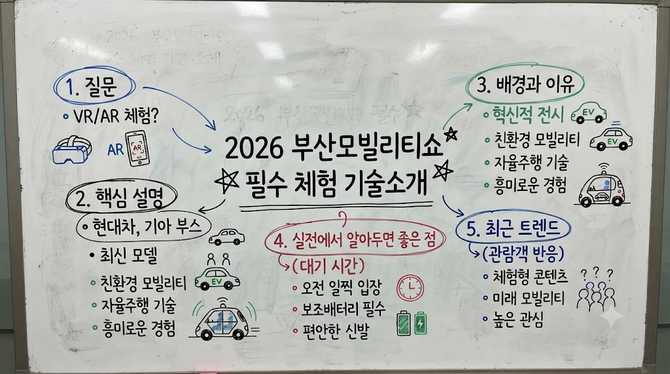 2026 부산모빌리티쇼
필수 체험 기술소개
1. 질문
• VR/AR 체험?
AR
AR
2. 핵심 설명
• 현대차, 기아 부스
• 최신 모델
• 친환경 모빌리티
EV
• 자율주행 기술
• 흥미로운 경험
3. 배경과 이유
• 혁신적 전시
EV
• 친환경 모빌리티
EV
• 자율주행 기술
• 흥미로운 경험
4. 실전에서 알아두면 좋은 점
(대기 시간)
• 오전 일찍 입장
• 보조배터리 필수
• 편안한 신발
5. 최근 트렌드
(관람객 반응)
• 체험형 콘텐츠
? ? ?
• 미래 모빌리티
• 높은 관심